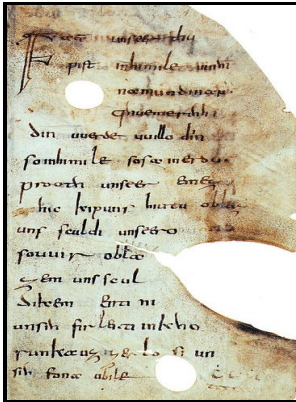 Fater unseer thu
pist inhimile uuihi
namun dinan
qhueme rihhi
din uuerde uuillo din
so inhimile sosa inerdu
prooth unseer emez
hic kip uns hiutu oblaz
uns sculdi unsero
so uuir oblaz
zem uns scul
dikem enti ni
unsih firleiti inkho
runka uzzer losi un
sih fona ubile